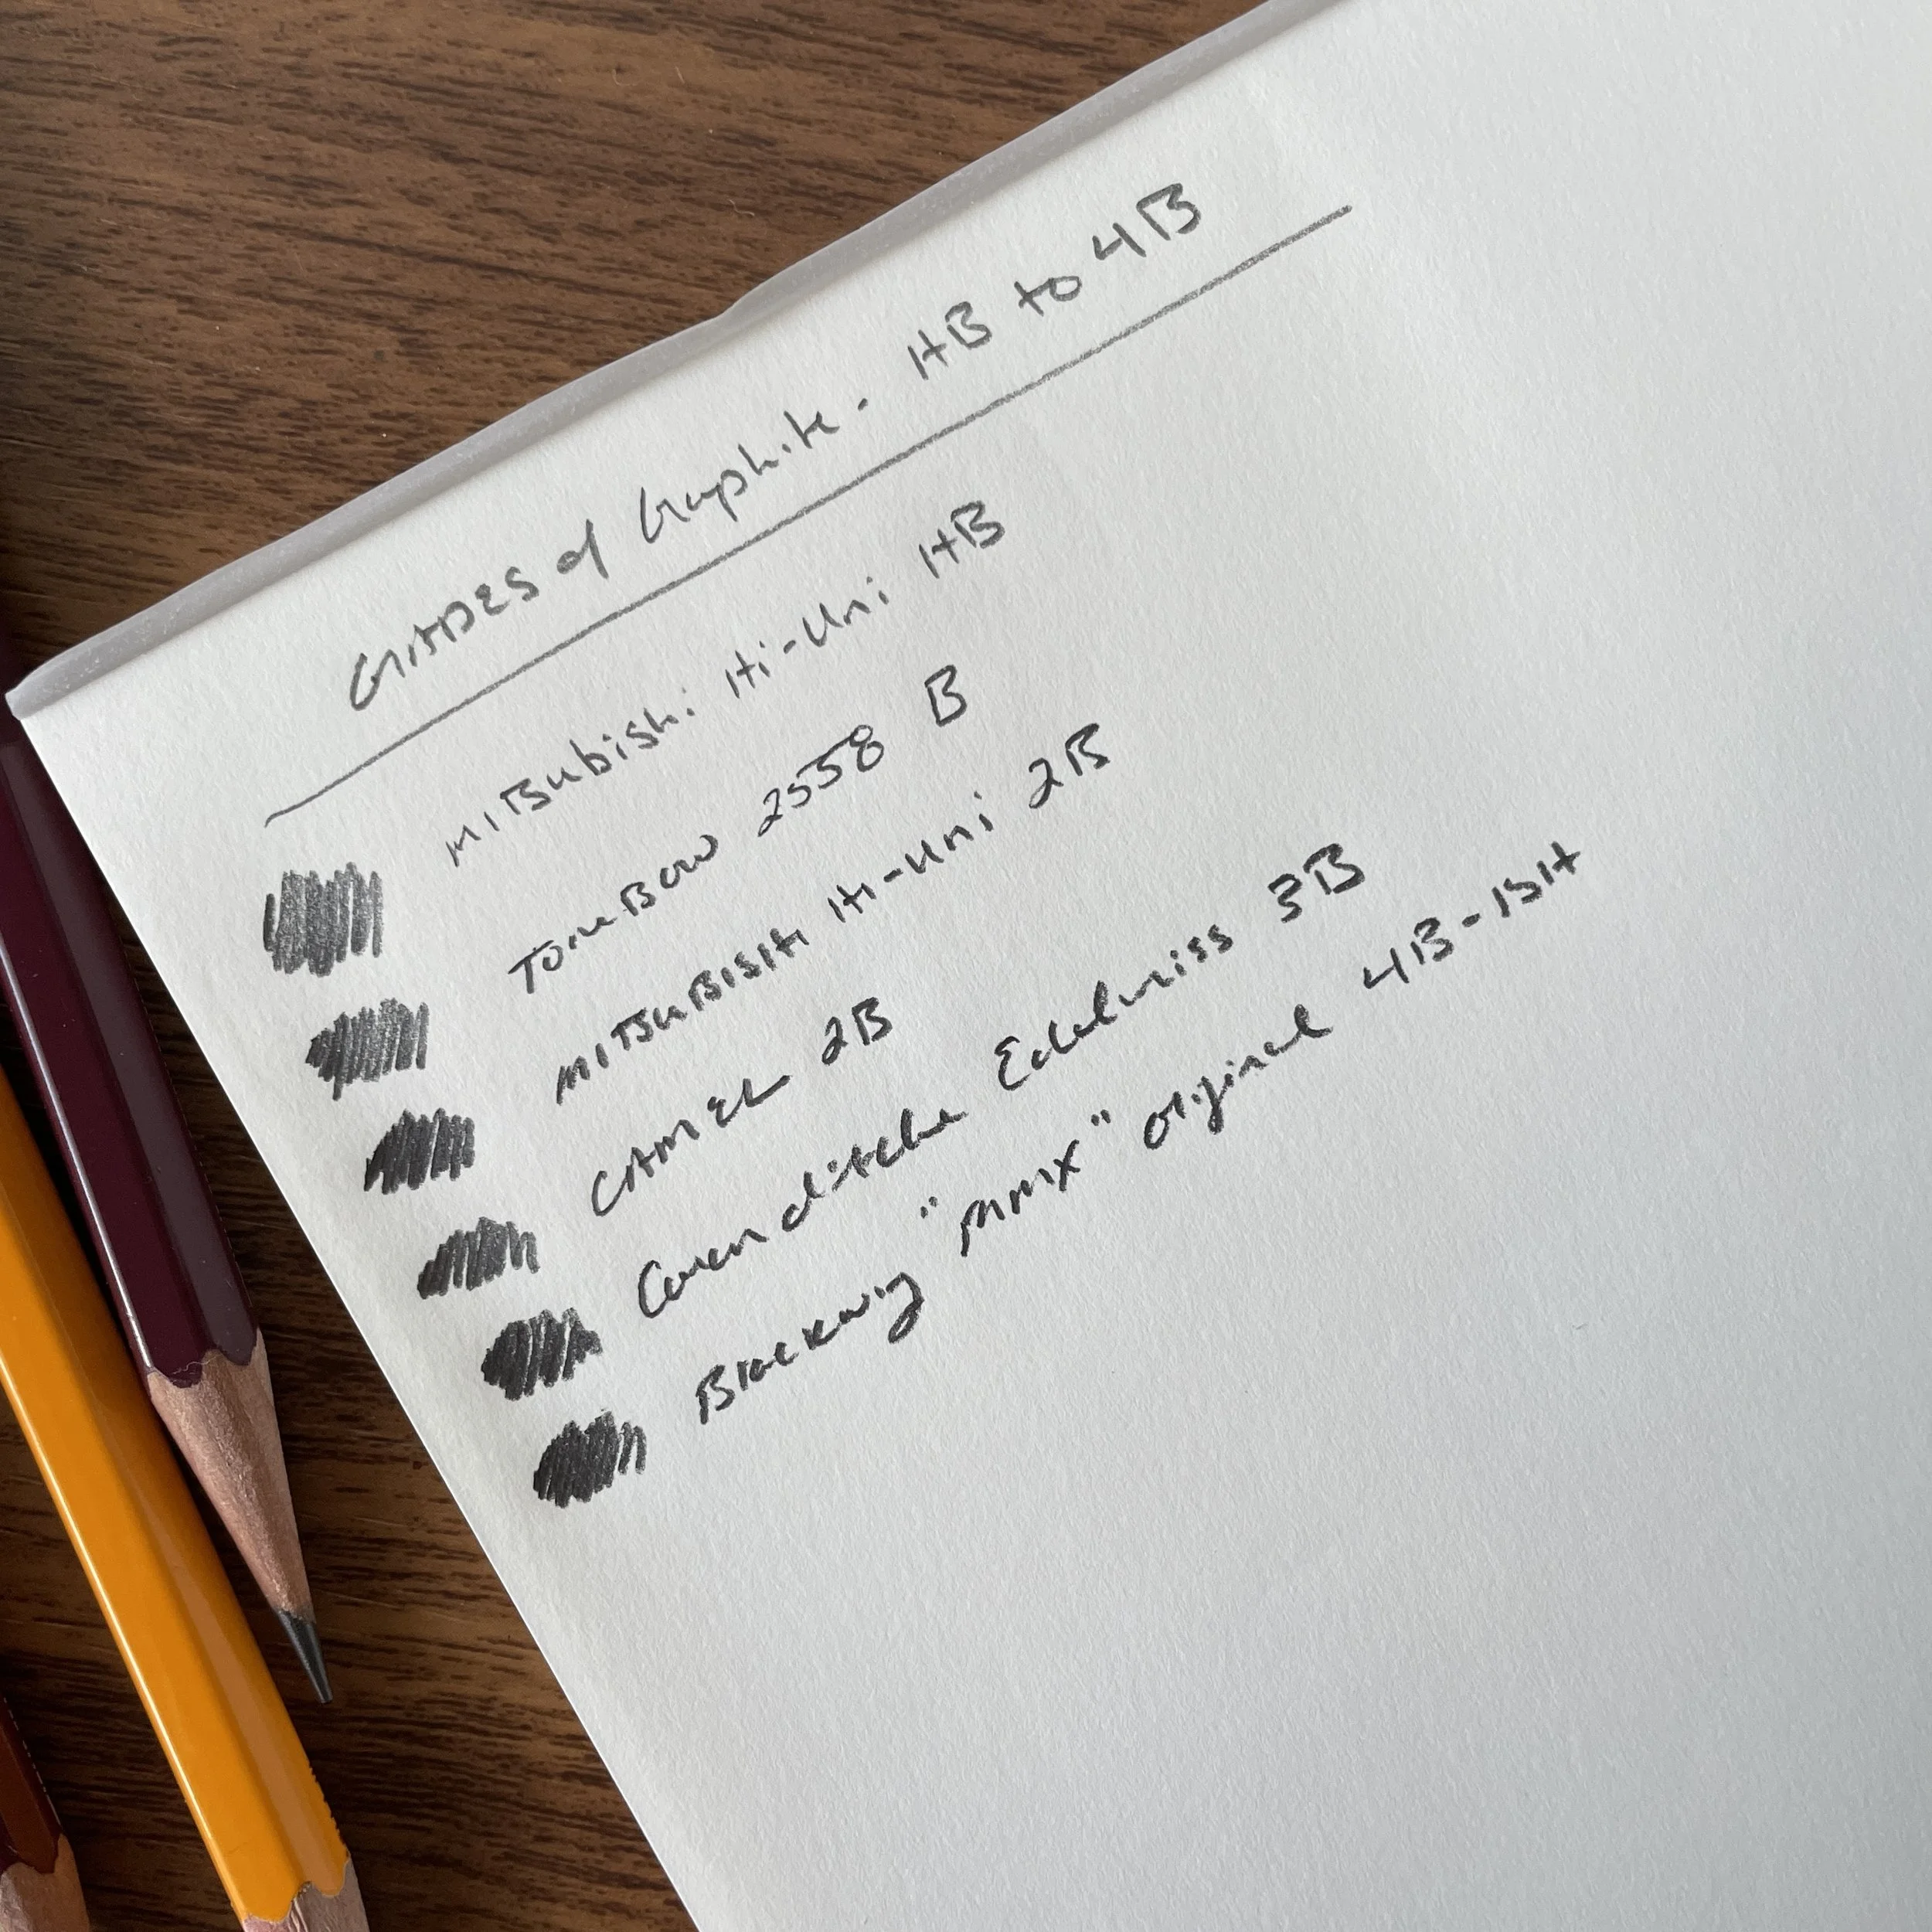 GRADES of Graphite - HB to 4B
MITSubishi Hi-Uni HB
TOMBOW 2558 B
MITSUBISHI Hi-Uni 2B
CAMEL 2B
Caran d'Ache Edelweiss 3B
Blackwing "MMX" Original 4B-ISH